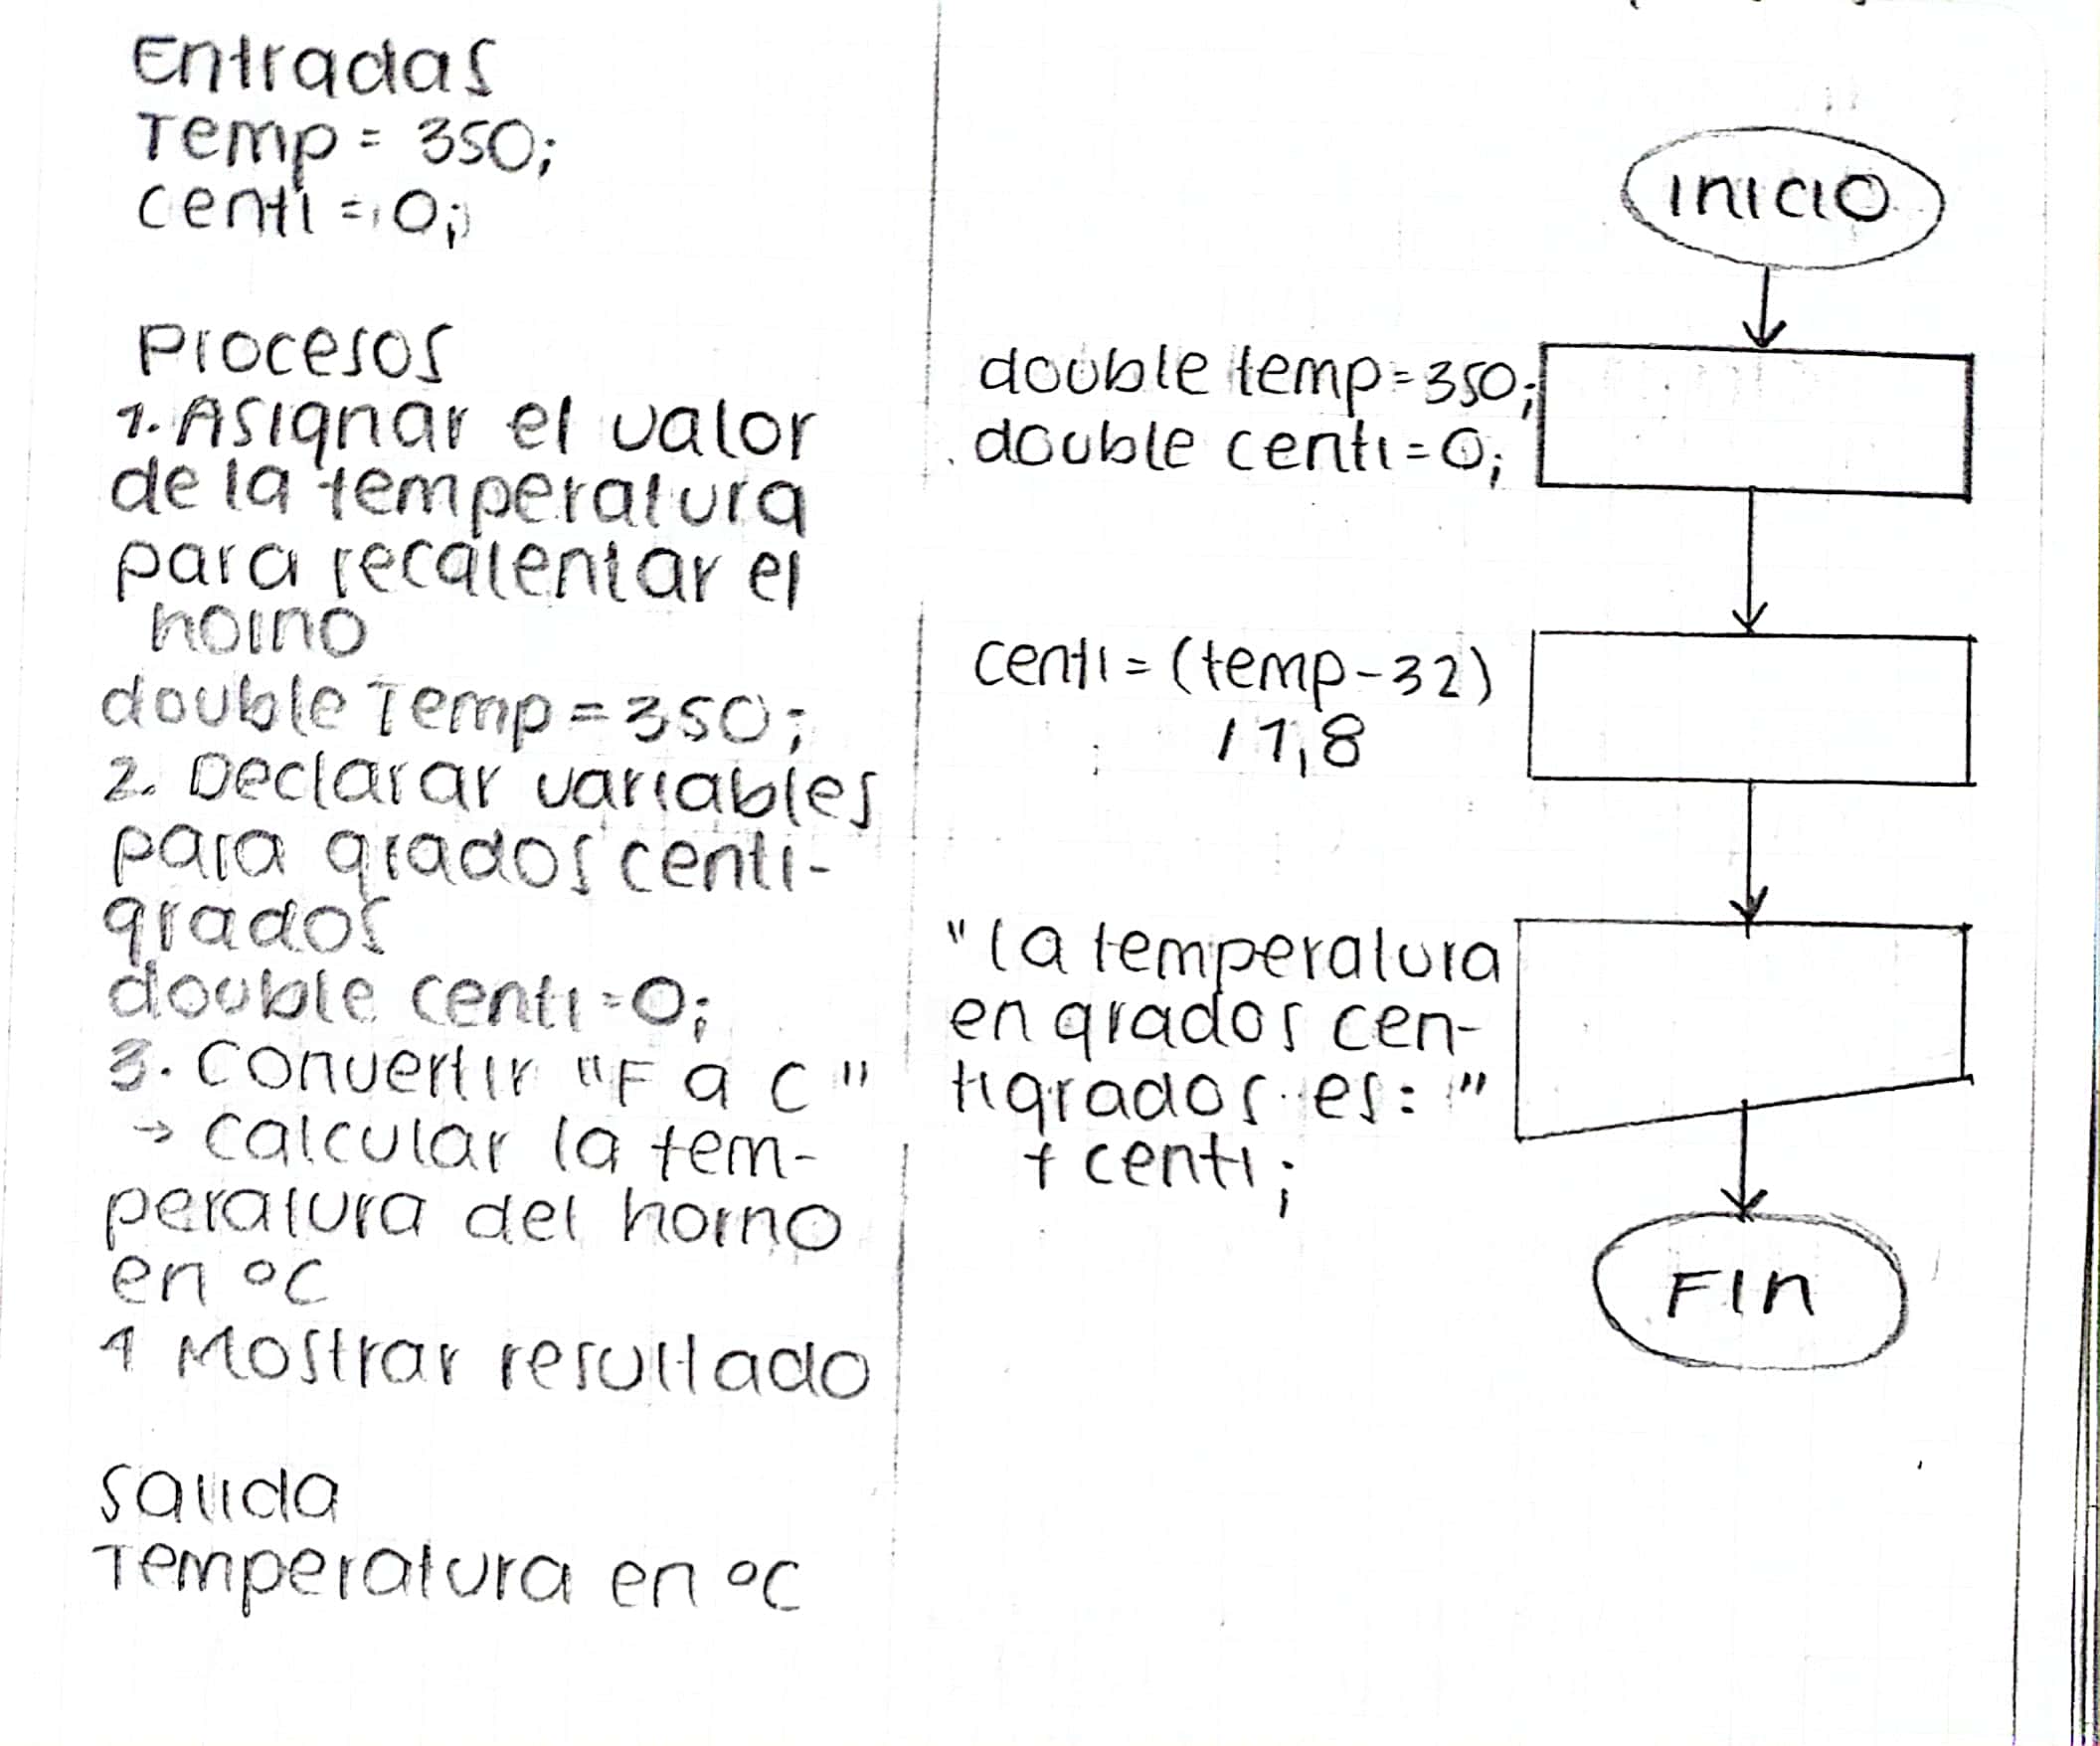 Entradas
Temp = 350;
centi = 0;
Procesos
1. Asignar el valor
de la temperatura
para recalentar el
horno
double Temp = 350;
2. Declarar variables
para grados centi-
grados
double centi = 0;
3. convertir "F a C"
→ calcular la tem-
peratura del horno
en °C
4 Mostrar resultado
Salida
Temperatura en °C
inicio
double temp = 350;
double centi = 0;
centi = (temp - 32)
/ 1,8
"la temperatura
en grados cen-
tigrados es: "
+ centi;
Fin